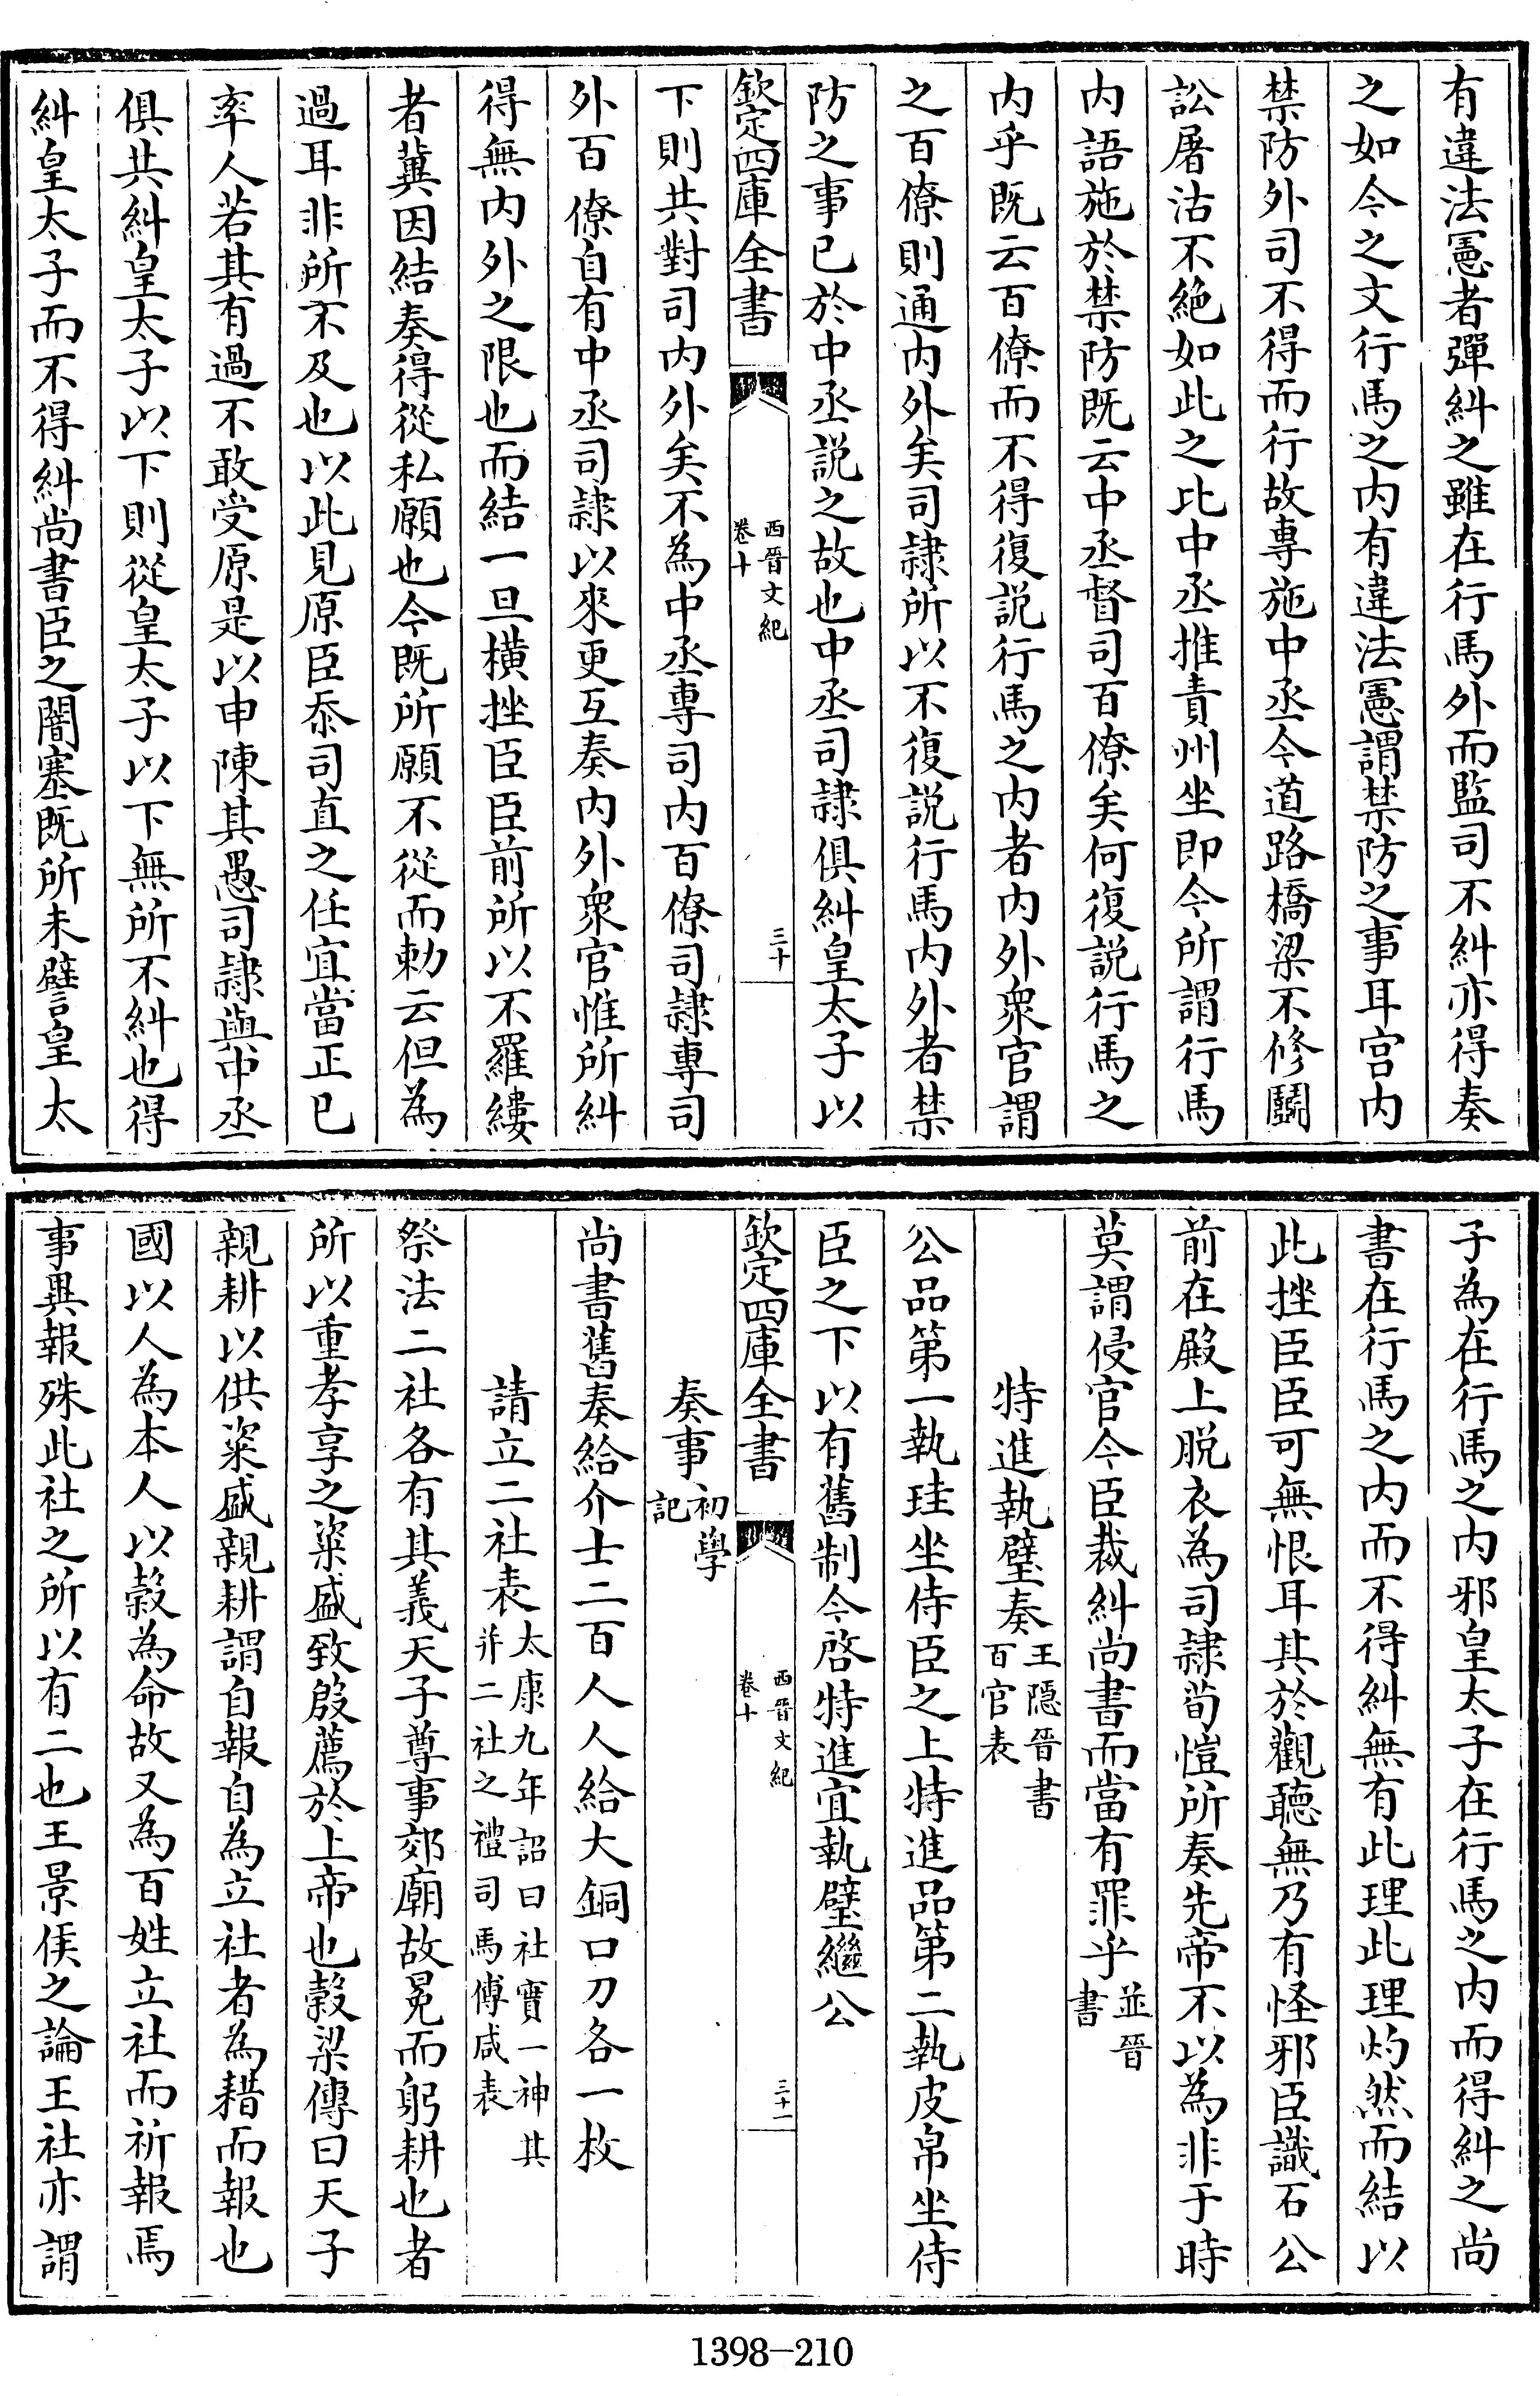 有違法憲者彈糾之雖在行馬外而監司不糾亦得奏
之如今之文行馬之内有違法憲謂禁防之事耳宫内
禁防外司不得而行故專施中丞今道路橋梁不修鬭
訟屠沽不絶如此之比中丞推責州坐即今所謂行馬
内語施於禁防既云中丞督司百僚矣何復説行馬之
内乎既云百僚而不得復説行馬之内者内外衆官謂
之百僚則通内外矣司隷所以不復説行馬内外者禁
防之事已於中丞説之故也中丞司隷俱糾皇太子以
欽定四庫全書 西晉文紀卷十 三十
下則共對司内外矣不為中丞專司内百僚司隷專司
外百僚自有中丞司隷以來更互奏内外衆官惟所糾
得無内外之限也而結一旦横挫臣臣前所以不羅縷
者冀因結奏得從私願也今既所願不從而勅云但為
過耳非所不及也以此見原臣忝司直之任宜當正已
率人若其有過不敢受原是以申陳其愚司隷與中丞
俱共糾皇太子以下則從皇太子以下無所不糾也得
糾皇太子而不得糾尚書臣之闇塞既所未譬皇太
子為在行馬之内邪皇太子在行馬之内而得糾之尚
書在行馬之内而不得糾無有此理此理灼然而結以
此挫臣臣可無恨耳其於觀聽無乃有怪邪臣識石公
前在殿上脱衣為司隷荀愷所奏先帝不以為非于時
莫謂侵官今臣裁糾尚書而當有罪乎並晉書
特進執璧奏王隠晉書百官表
公品第一執珪坐侍臣之上特進品第二執皮帛坐侍
臣之下以有舊制今啓特進宜執璧繼公
欽定四庫全書 西晉文紀卷十 三十一
奏事初學記
尚書舊奏給介士二百人人給大銅口刀各一枚
請立二社表太康九年詔曰社實一神其并二社之禮司馬傅咸表
祭法二社各有其義天子尊事郊廟故冕而躬耕也者
所以重孝享之粢盛致殷薦於上帝也穀梁傳曰天子
親耕以供粢盛親耕謂自報自為立社者為耤而報也
國以人為本人以穀為命故又為百姓立社而祈報焉
事異報殊此社之所以有二也王景侯之論王社亦謂
1398-210